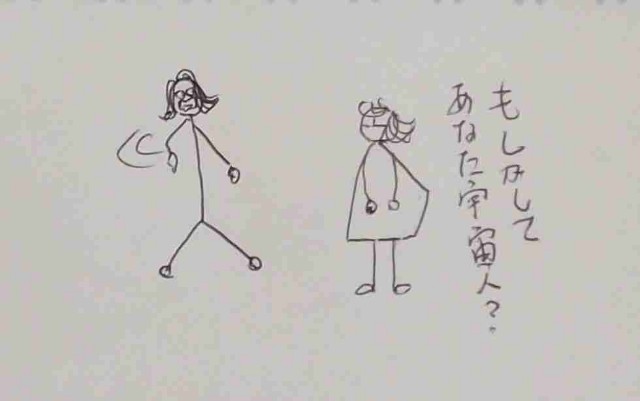 もしかして
あなた宇宙人?